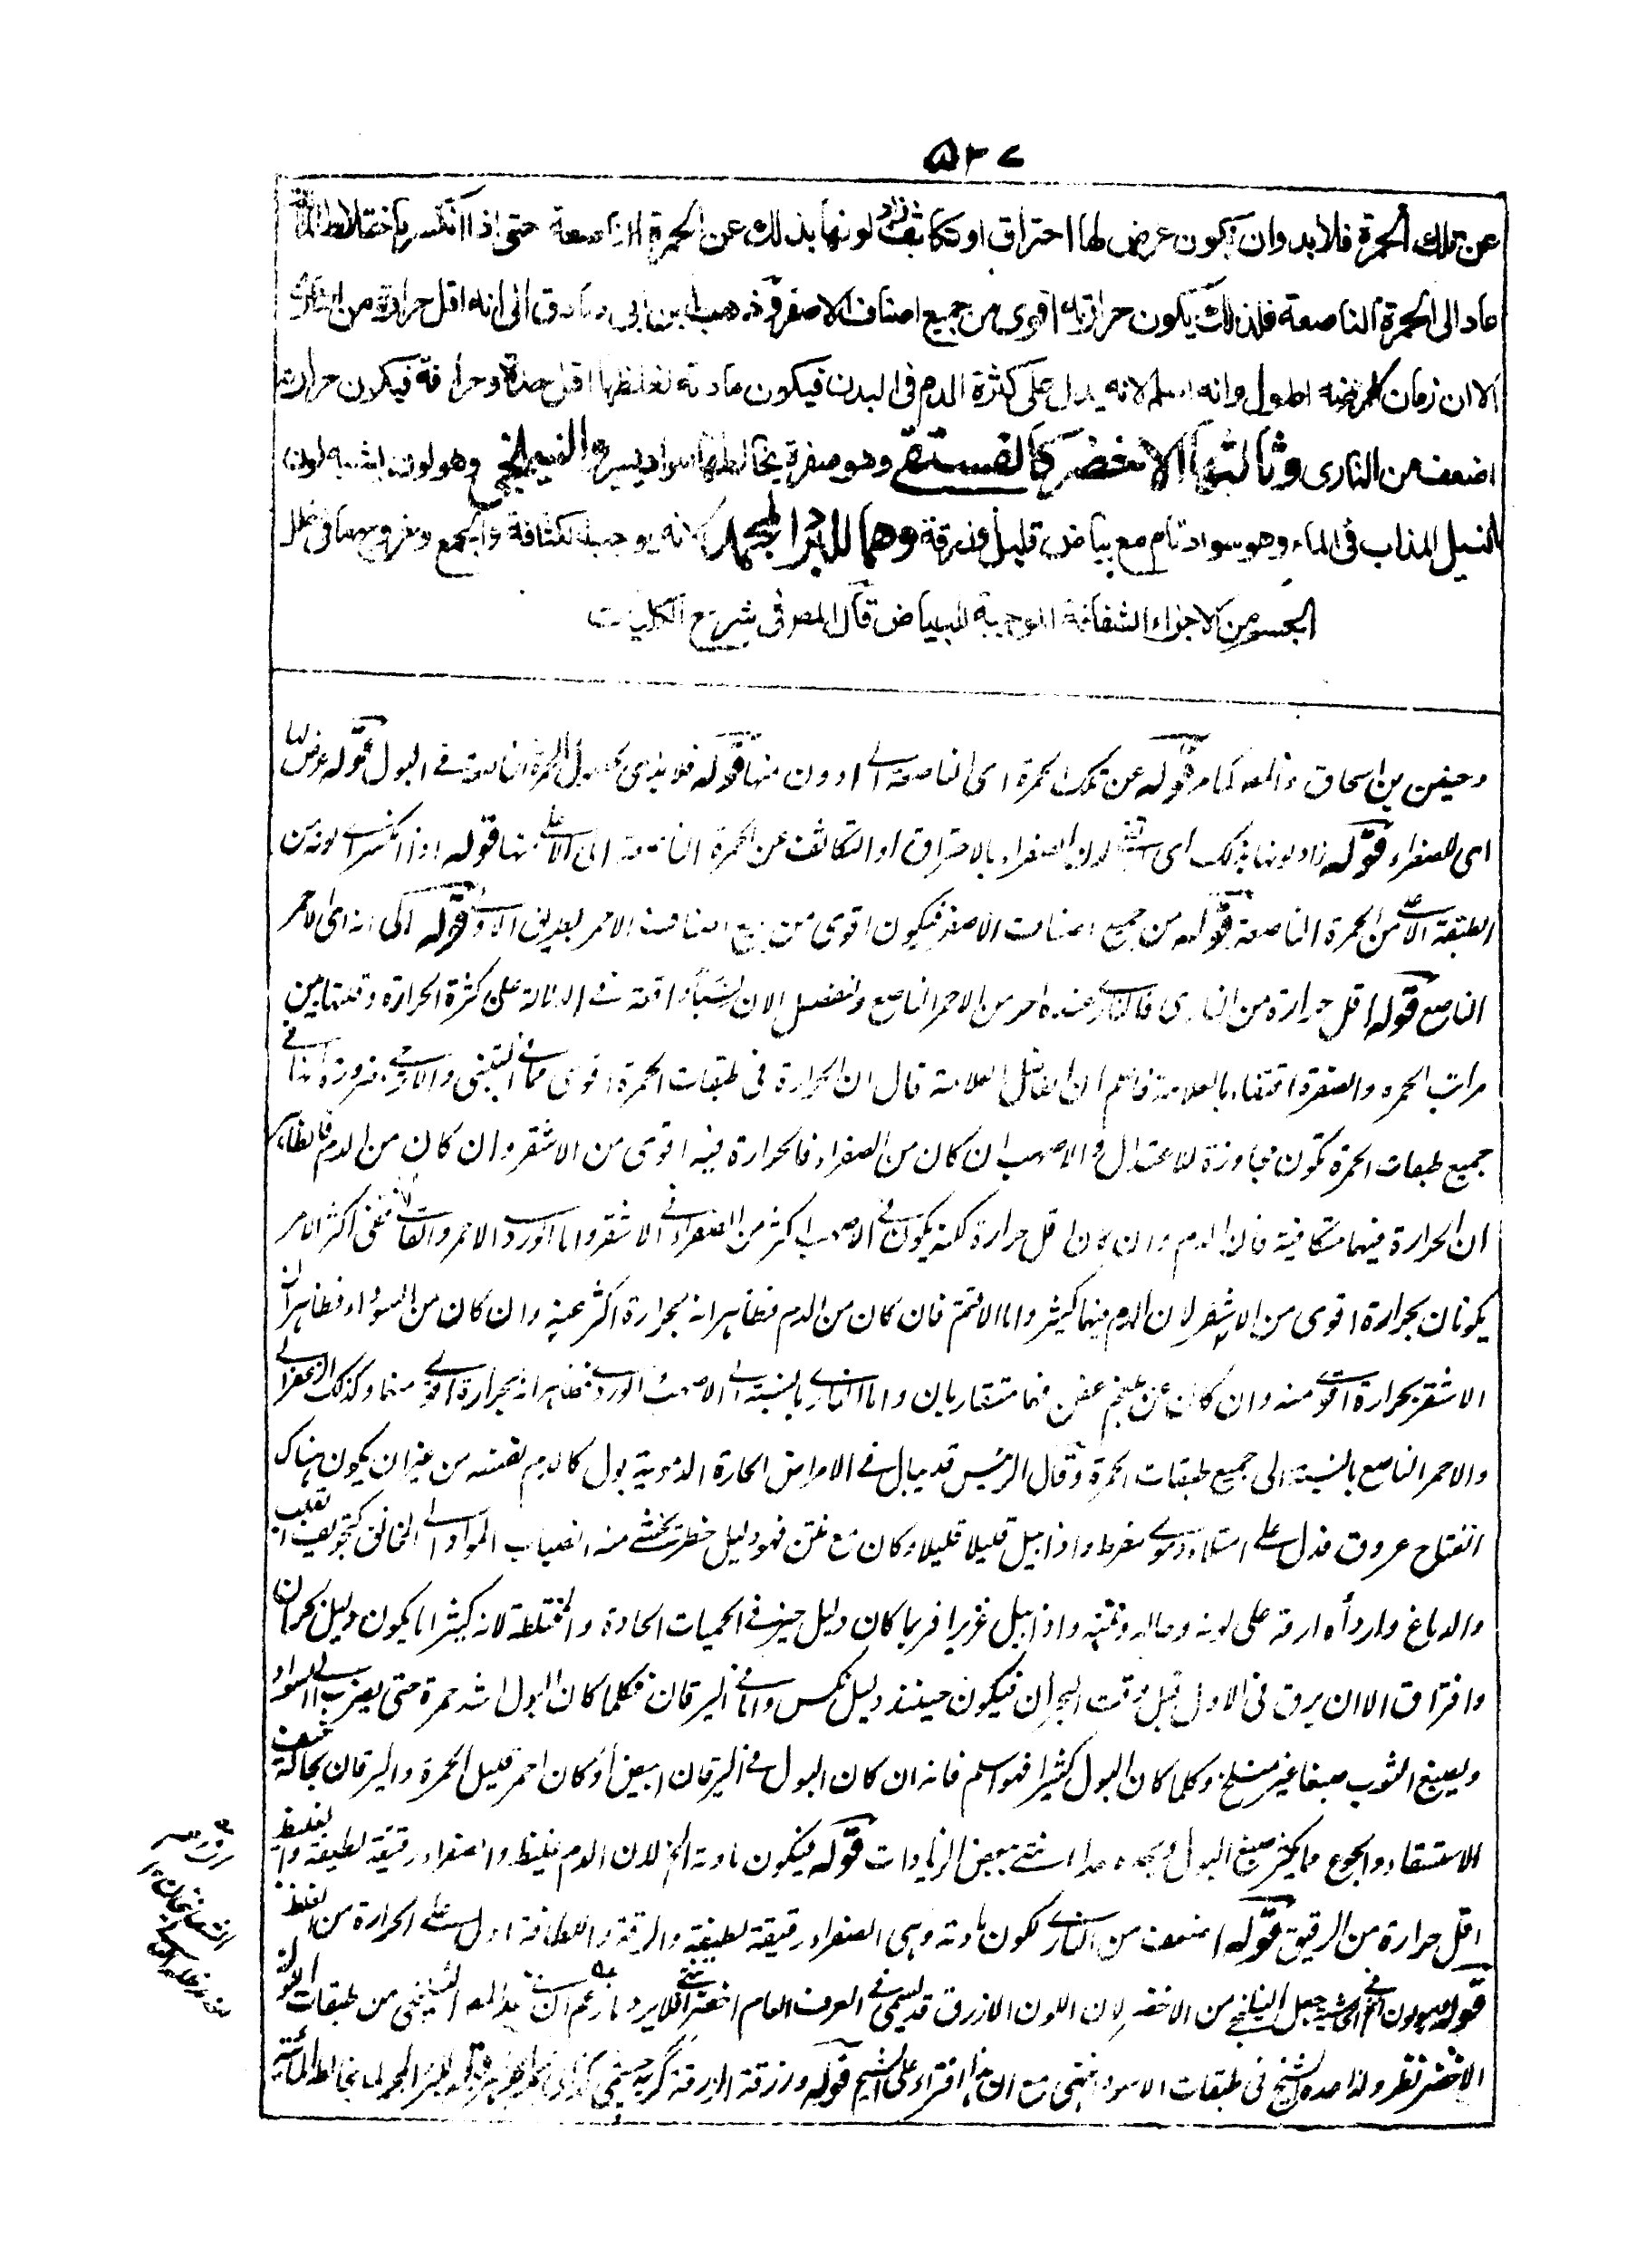 ٥٣٧
عن تلك الحمرة فلا بد وان يكون عرض لها احتراق او تكاثف زاد لونها بذلك عن الحمرة الناصعة حتى اذا انكسر باختلاط المائية
عاد الى الحمرة الناصعة فلذلك يكون حرارته اقوى من جميع اصناف الاصفر وذهب ابن ابى صادق الى انه اقل حرارة من النارى
الا ان زمان مرضه اطول وانه اسلم لانه يدل على كثرة الدم فى البدن فيكون مادته لغلظها اقل حدة وحرافة فيكون حرارته
اضعف من النارى وثالثها الاخضر كالفستقى وهو صفرة يخالطها سواد يسير والنيلنجى وهو لون يشبه لون
النيل المذاب فى الماء وهو سواد تام مع بياض قليل وزرقة وهما للبرد المجمد لانه يوجب الكثافة والجمع وخروج ما فى خلل
الجسم من الاجزاء الشفافة الموجبة للبياض قال المص فى شرح الكليات
وحنين بن اسحاق والمص كما مر قوله عن تلك الحمرة اى الناصعة الى ادون منها قوله فلا بد اى لحصول الحمرة الناصعة فى البول قوله عرض لها
اى للصفراء قوله زاد لونها بذلك اى لون الصفراء بالاحتراق او التكاثف عن الحمرة الناصعة الى الاعلى منها قوله اذا انكسر لونه من
الطبقة الاعلى من الحمرة الناصعة قوله من جميع اصناف الاصفر فيكون اقوى من جميع اصناف الاحمر بطريق الاولى قوله الى انه اى الاحمر
الناصع قوله اقل حرارة من النارى فالنارى عنده احر من الاحمر الناصع ولنفصل الان نسبا واقعة فى الدلالة على كثرة الحرارة وقلتها بين
مراتب الحمرة والصفرة اقتفاء بالعلامة فاعلم ان الفاضل العلامة قال ان الحرارة فى طبقات الحمرة اقوى مما فى التبنى والاترجى ضرورة انها فى
جميع طبقات الحمرة تكون مجاوزة للاعتدال والاصهب ان كان من الصفراء فالحرارة فيه اقوى من الاشقر وان كان من الدم فالظاهر
ان الحرارة فيهما متكافية فان الدم وان كان اقل حرارة لكنه يكون فى الاصهب اكثر من الصفراء فى الاشقر واما الوردى والاحمر القانى ففى اكثر الامر
يكونان بحرارة اقوى من الاشقر لان الدم فيهما كثير واما الاقتم فان كان من الدم فظاهر انه بحرارة اكثر عنه وان كان من السوداء فظاهر ان
الاشقر بحرارة اقوى منه وان كان عن بلغم عفن فهما متقاربان واما النارى بالنسبة الى الاصهب والوردى فظاهر انه بحرارة اقوى منهما وكذلك الزعفرانى
والاحمر الناصع بالنسبة الى جميع طبقات الحمرة وقال الرئيس قد يبال فى الامراض الحارة الدموية بول كالدم نفسه من غير ان يكون هناك
انفتاح عروق فدل على امتلاء دموى مفرط واذا بيل قليلا قليلا وكان مع نتن فهو دليل خطر يخشى منه انصباب المواد الى المخانق كتجويف القلب
والدماغ واردأه ارقه على لونه وحاله ونتنه واذا بيل غزيرا فربما كان دليل خير فى الحميات الحادة والمختلطة لانه كثيرا ما يكون دليل بحران
وافراق الا ان يرق فى الاول قبل وقت البحران فيكون حينئذ دليل نكس واما فى اليرقان فكلما كان البول اشد حمرة حتى يضرب الى السواد
ويصبغ الثوب صبغا غير منسلخ وكلما كان البول كثيرا فهو اسلم فانه ان كان البول فى اليرقان ابيض او كان احمر قليل الحمرة واليرقان بحاله خيف
الاستسقاء والجوع مما يكثر صبغ البول ويحده جدا انتهى ببعض الزيادات قوله فيكون مادته الخ لان الدم غليظ والصفراء رقيقة لطيفة والغليظ
اقل حرارة من الرقيق قوله اضعف من النارى لكون مادته وهى الصفراء رقيقة لطيفة والرقة واللطافة ادل على الحرارة من الغلظ
من الاخضر لان اللون الازرق قد يسمى فى العرف العام اخضر من طبقات
الاخضر نظر ولذا عده الشيخ فى طبقات الاسود انتهى مع ان هذا افتراء على الشيخ قوله وزرقة الزرقة گربه چشمى